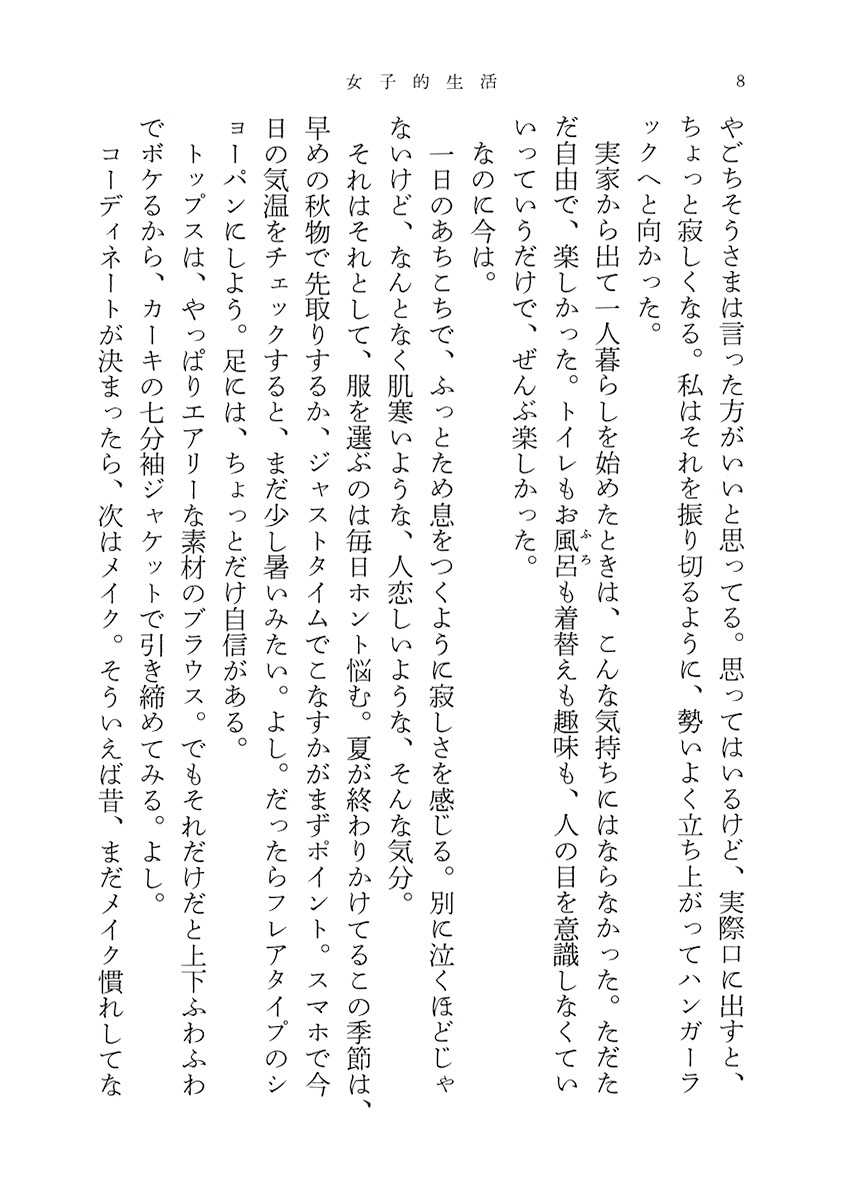 女子的生活
8
やごちそうさまは言った方がいいと思ってる。思ってはいるけど、実際口に出すと、
ちょっと寂しくなる。私はそれを振り切るように、勢いよく立ち上がってハンガーラ
ックへと向かった。
実家から出て一人暮らしを始めたときは、こんな気持ちにはならなかった。ただた
だ自由で、楽しかった。トイレもお風呂も着替えも趣味も、人の目を意識しなくてい
ふろ
いっていうだけで、ぜんぶ楽しかった。
なのに今は。
一日のあちこちで、ふっとため息をつくように寂しさを感じる。別に泣くほどじゃ
ないけど、なんとなく肌寒いような、人恋しいような、そんな気分。
それはそれとして、服を選ぶのは毎日ホント悩む。夏が終わりかけてるこの季節は、
早めの秋物で先取りするか、ジャストタイムでこなすかがまずポイント。スマホで今
日の気温をチェックすると、まだ少し暑いみたい。よし。だったらフレアタイプのシ
ョーパンにしよう。足には、ちょっとだけ自信がある。
トップスは、やっぱりエアリーな素材のブラウス。でもそれだけだと上下ふわふわ
でボケるから、カーキの七分袖ジャケットで引き締めてみる。よし。
コーディネートが決まったら、次はメイク。そういえば昔、まだメイク慣れしてな